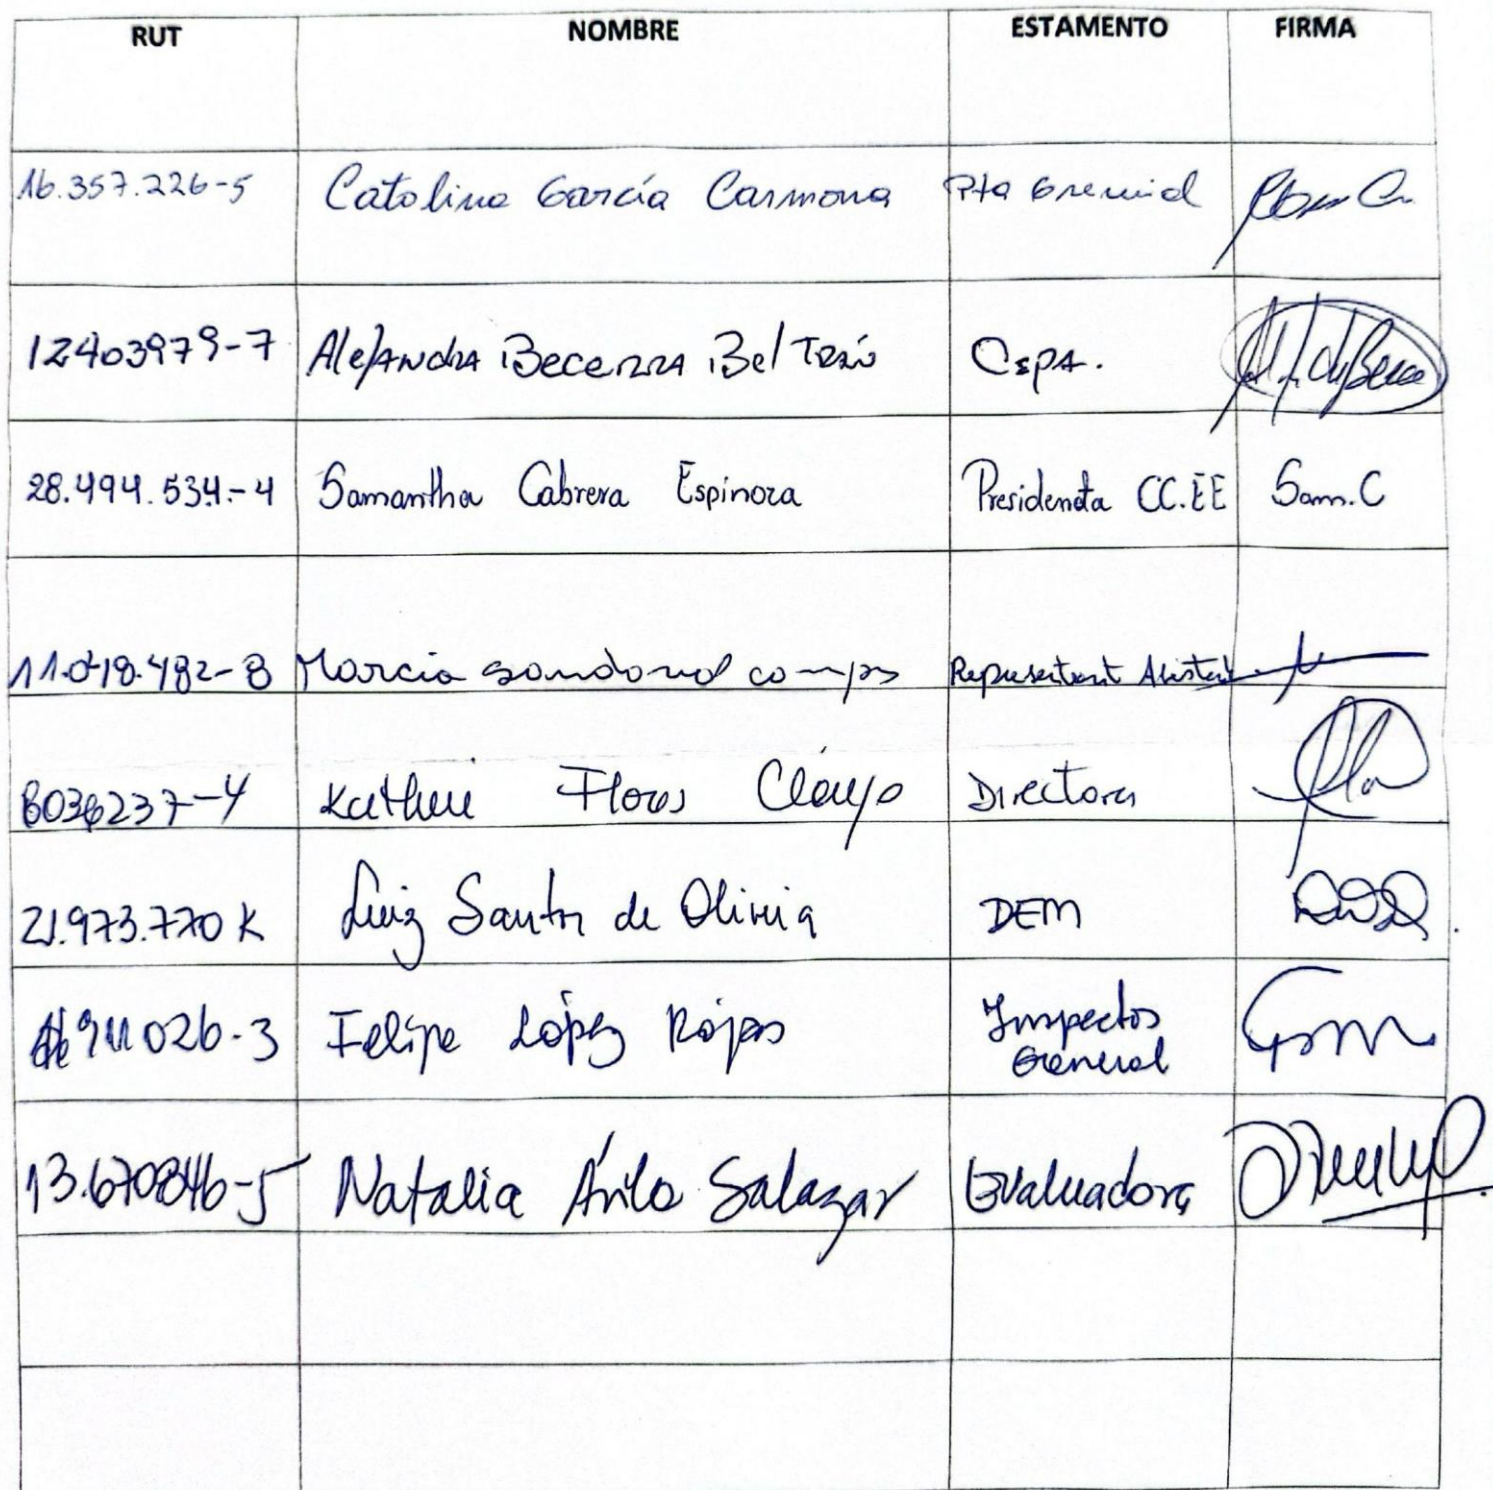 RUT NOMBRE ESTAMENTO FIRMA
16.357.226-5 Catalina García Carmona Pta Gremial
12403979-7 Alejandra Becerra Beltrán CEPA.
28.494.534.-4 Samantha Cabrera Espinoza Presidenta CC.EE Sam.C
Marcia Sandoval Representant
8036237-4 Flores Directora
21.973.770 K Luiz Santos de Oliveira DEM
026-3 Felipe López Rojas Inspector
General
13.670846-5 Natalia Ávila Salazar Evaluadora